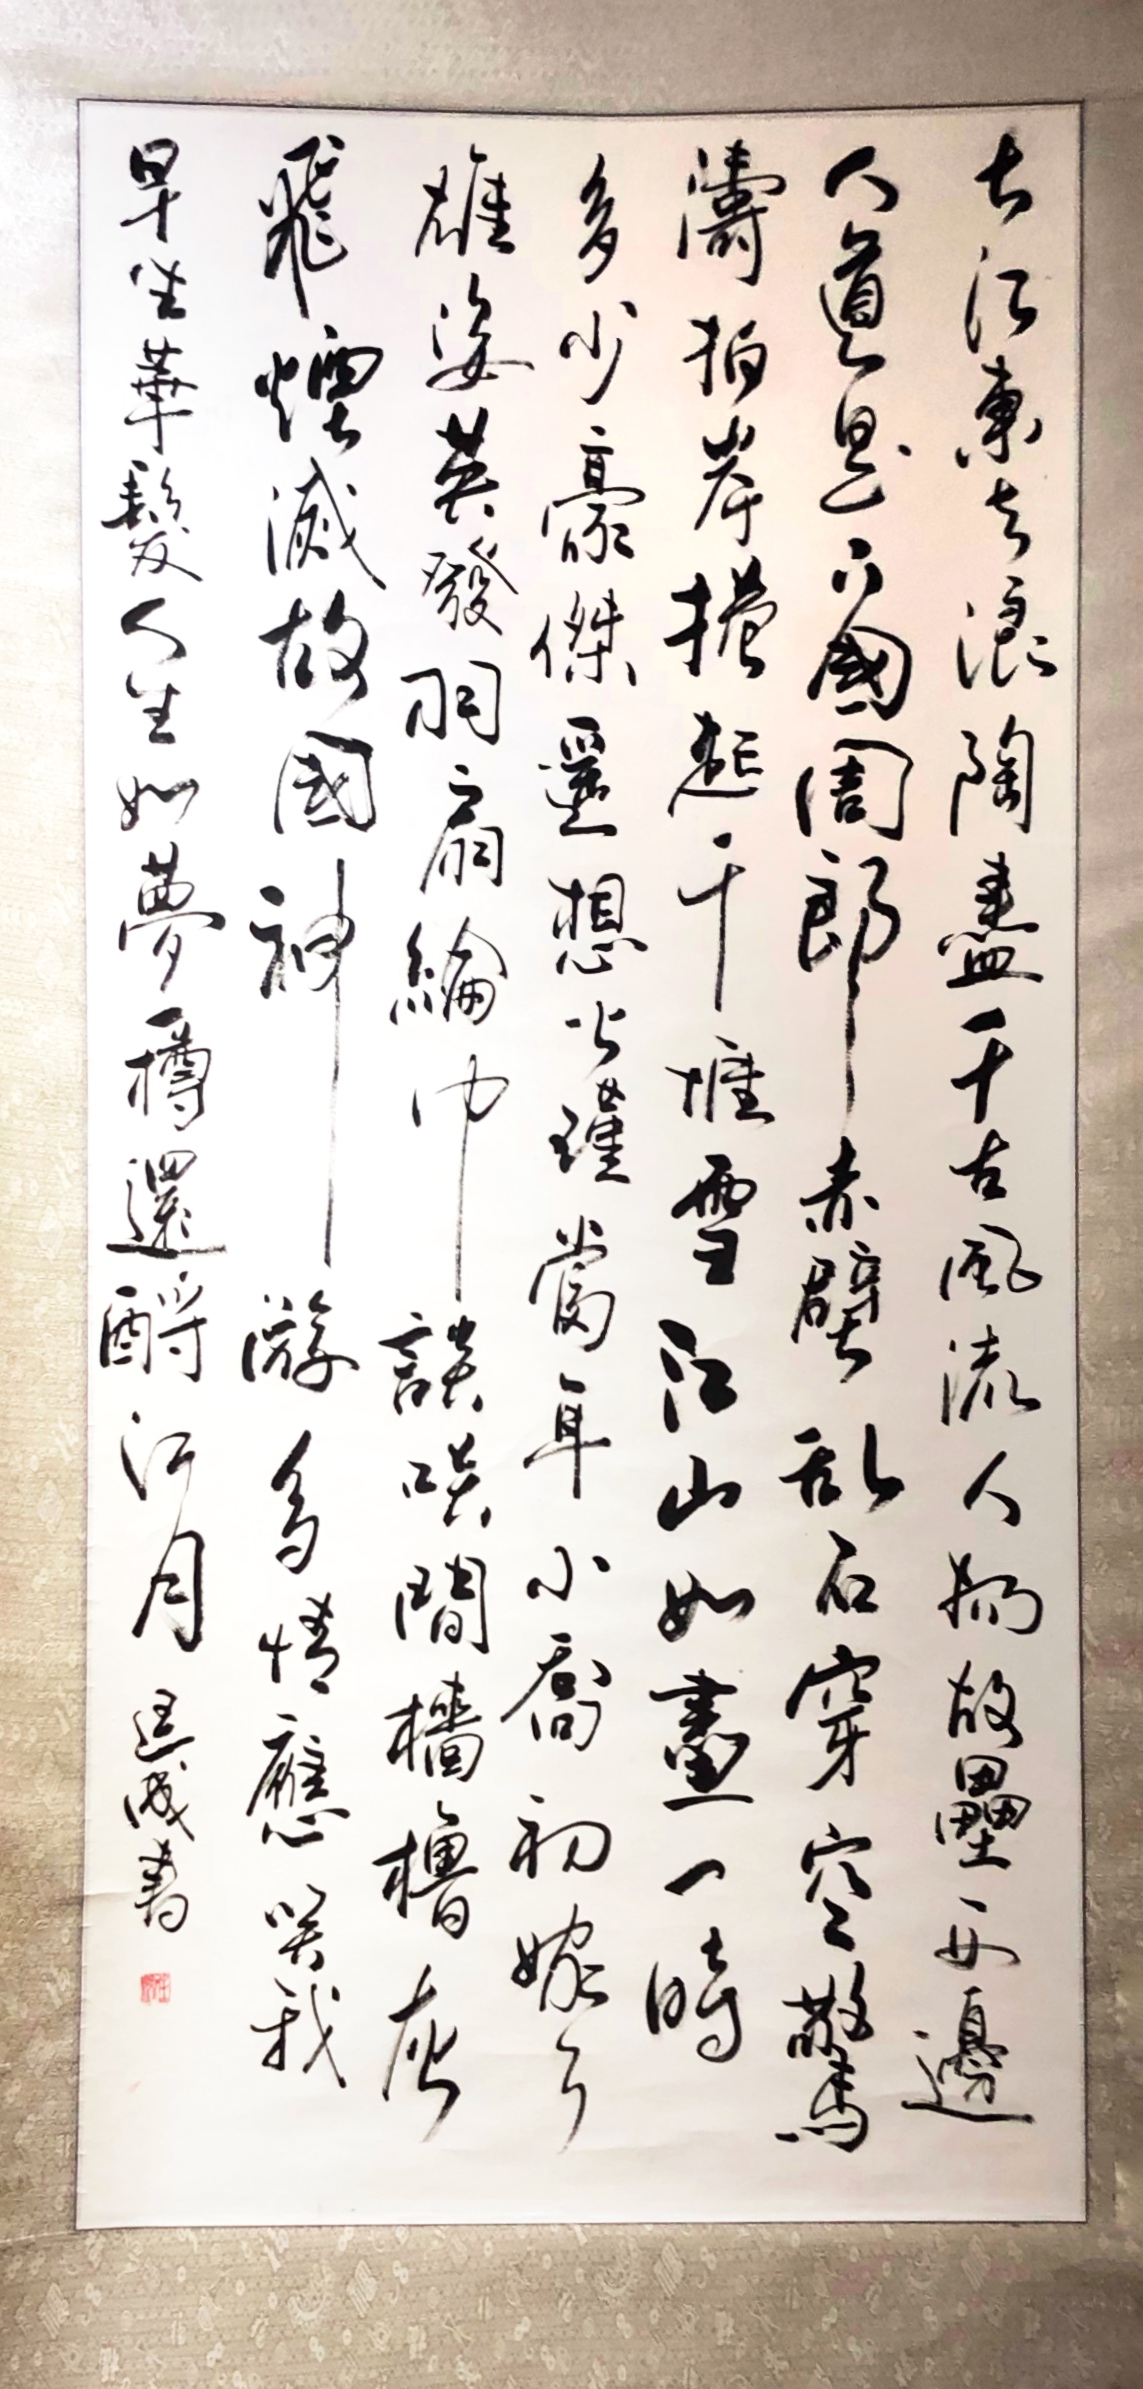 大江東去浪陶盡千古風流人物故壘西邊
人道是三國周郎赤壁乱石穿空驚
濤拍岸捲起千堆雪江山如畫一時
多少豪傑遥想公瑾當年小喬初嫁了
雄姿英發羽扇綸巾談咲間檣櫓灰
飛煙滅故國神游多情應笑我
早生華髮人生如夢一樽還酹江月 書